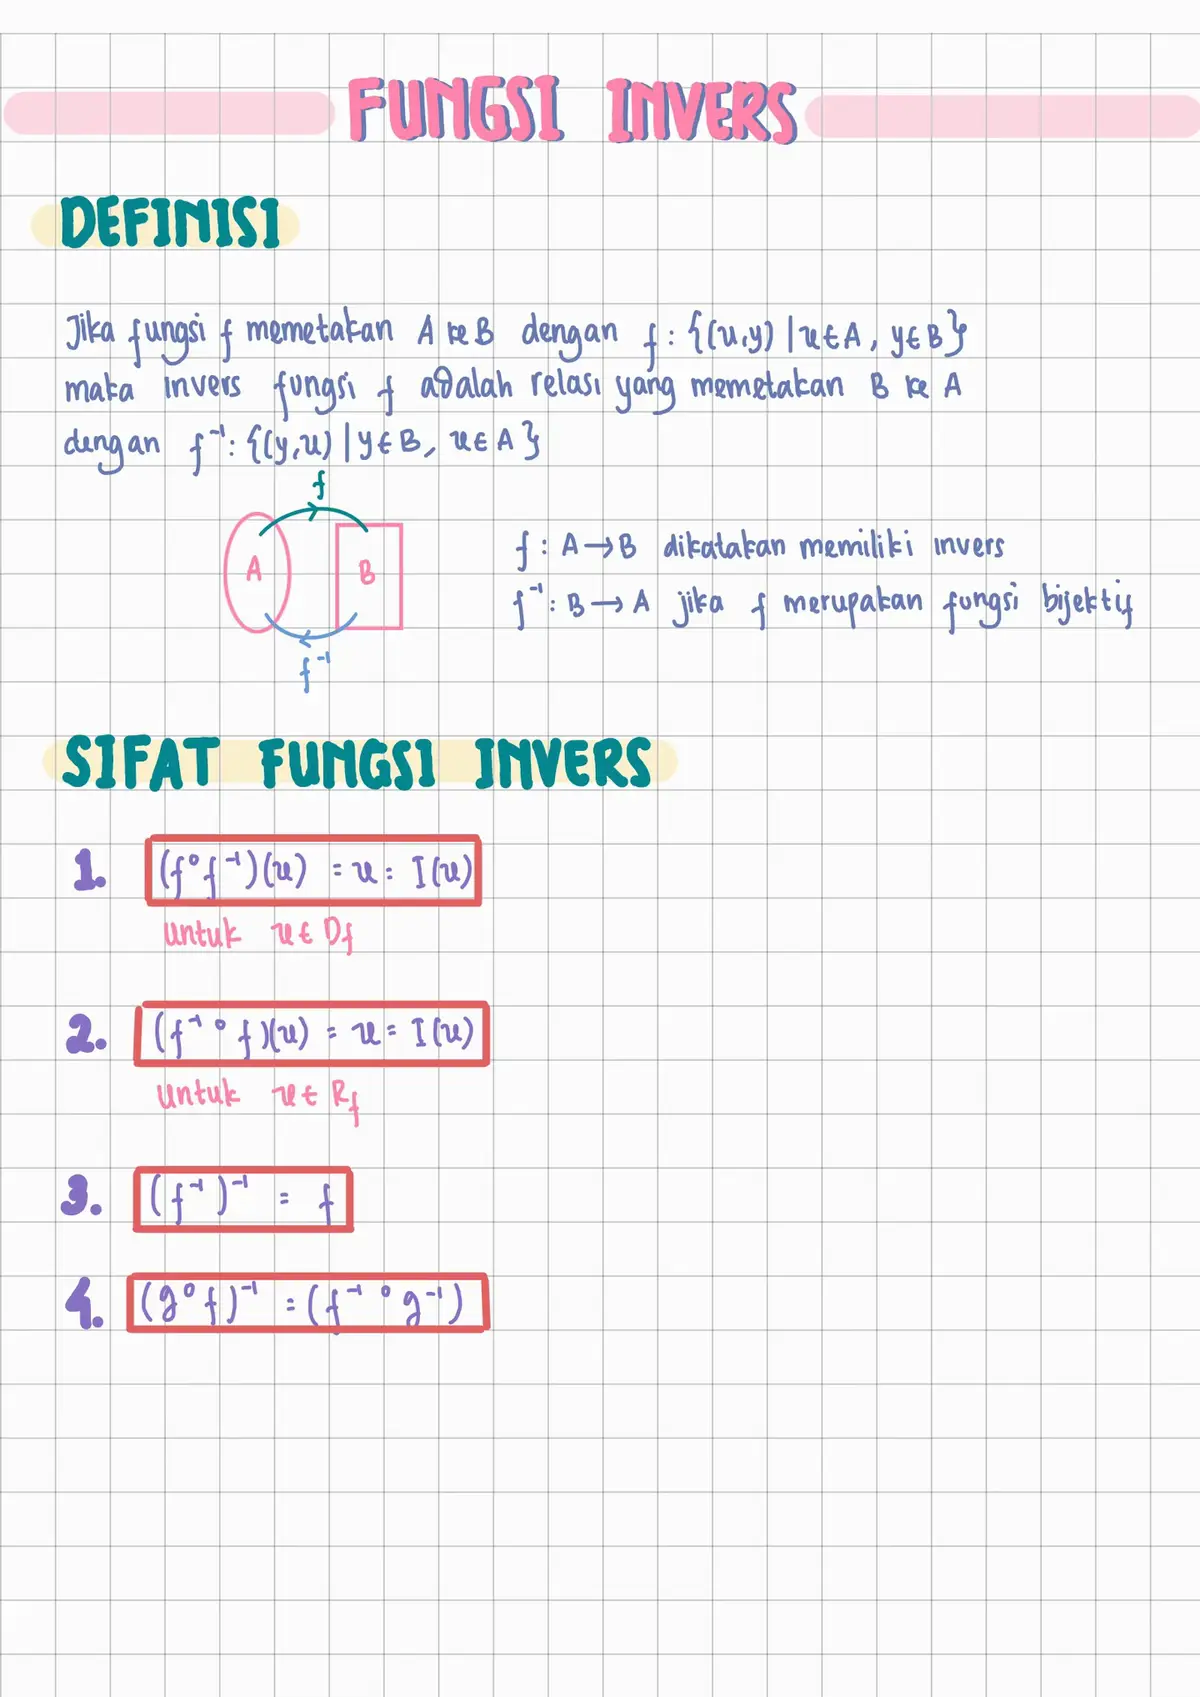 FUNGSI INVERS
DEFINISI
Jika fungsi f memetakan A ke B dengan f : {(x,y) | x ∈ A, y ∈ B}
maka invers fungsi f adalah relasi yang memetakan B ke A
dengan f⁻¹ : {(y,x) | y ∈ B, x ∈ A}
f
A B
f⁻¹
f : A → B dikatakan memiliki invers
f⁻¹ : B → A jika f merupakan fungsi bijektif
SIFAT FUNGSI INVERS
1. (f∘f⁻¹)(x) = x = I(x)
untuk x ∈ Df
2. (f⁻¹∘f)(x) = x = I(x)
untuk x ∈ Rf
3. (f⁻¹)⁻¹ = f
4. (g∘f)⁻¹ = (f⁻¹∘g⁻¹)